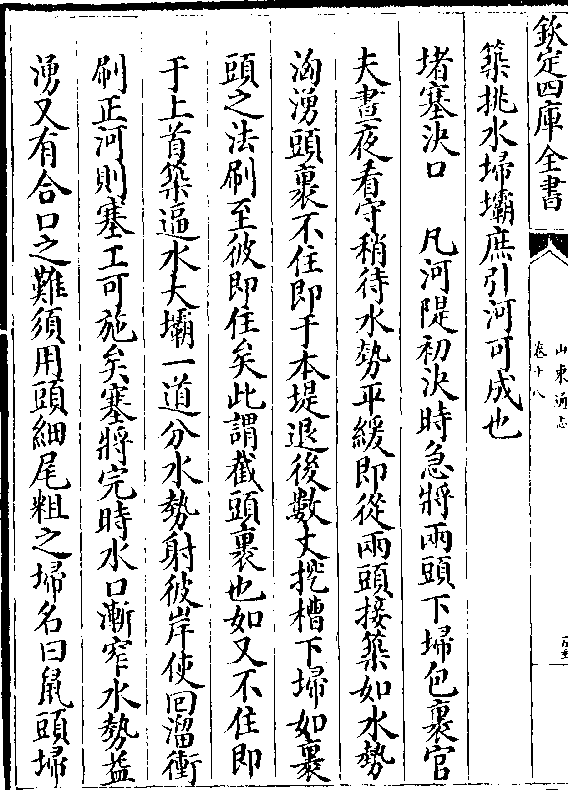 欽定四庫全書
山東通志
卷十八
築挑水埽壩庶引河可成也
堵塞決口　凡河隄初決時急將兩頭下埽包裹官
夫晝夜看守稍待水勢平緩即從兩頭接築如水勢
洶湧頭裹不住即于本堤退後數丈挖槽下埽如裹
頭之法刷至彼即住矣此謂截頭裹也如又不住即
于上首築逼水大壩一道分水勢射彼岸使回溜衝
刷正河則塞工可施矣塞將完時水口漸窄水勢益
湧又有合口之難須用頭細尾粗之埽名曰鼠頭埽